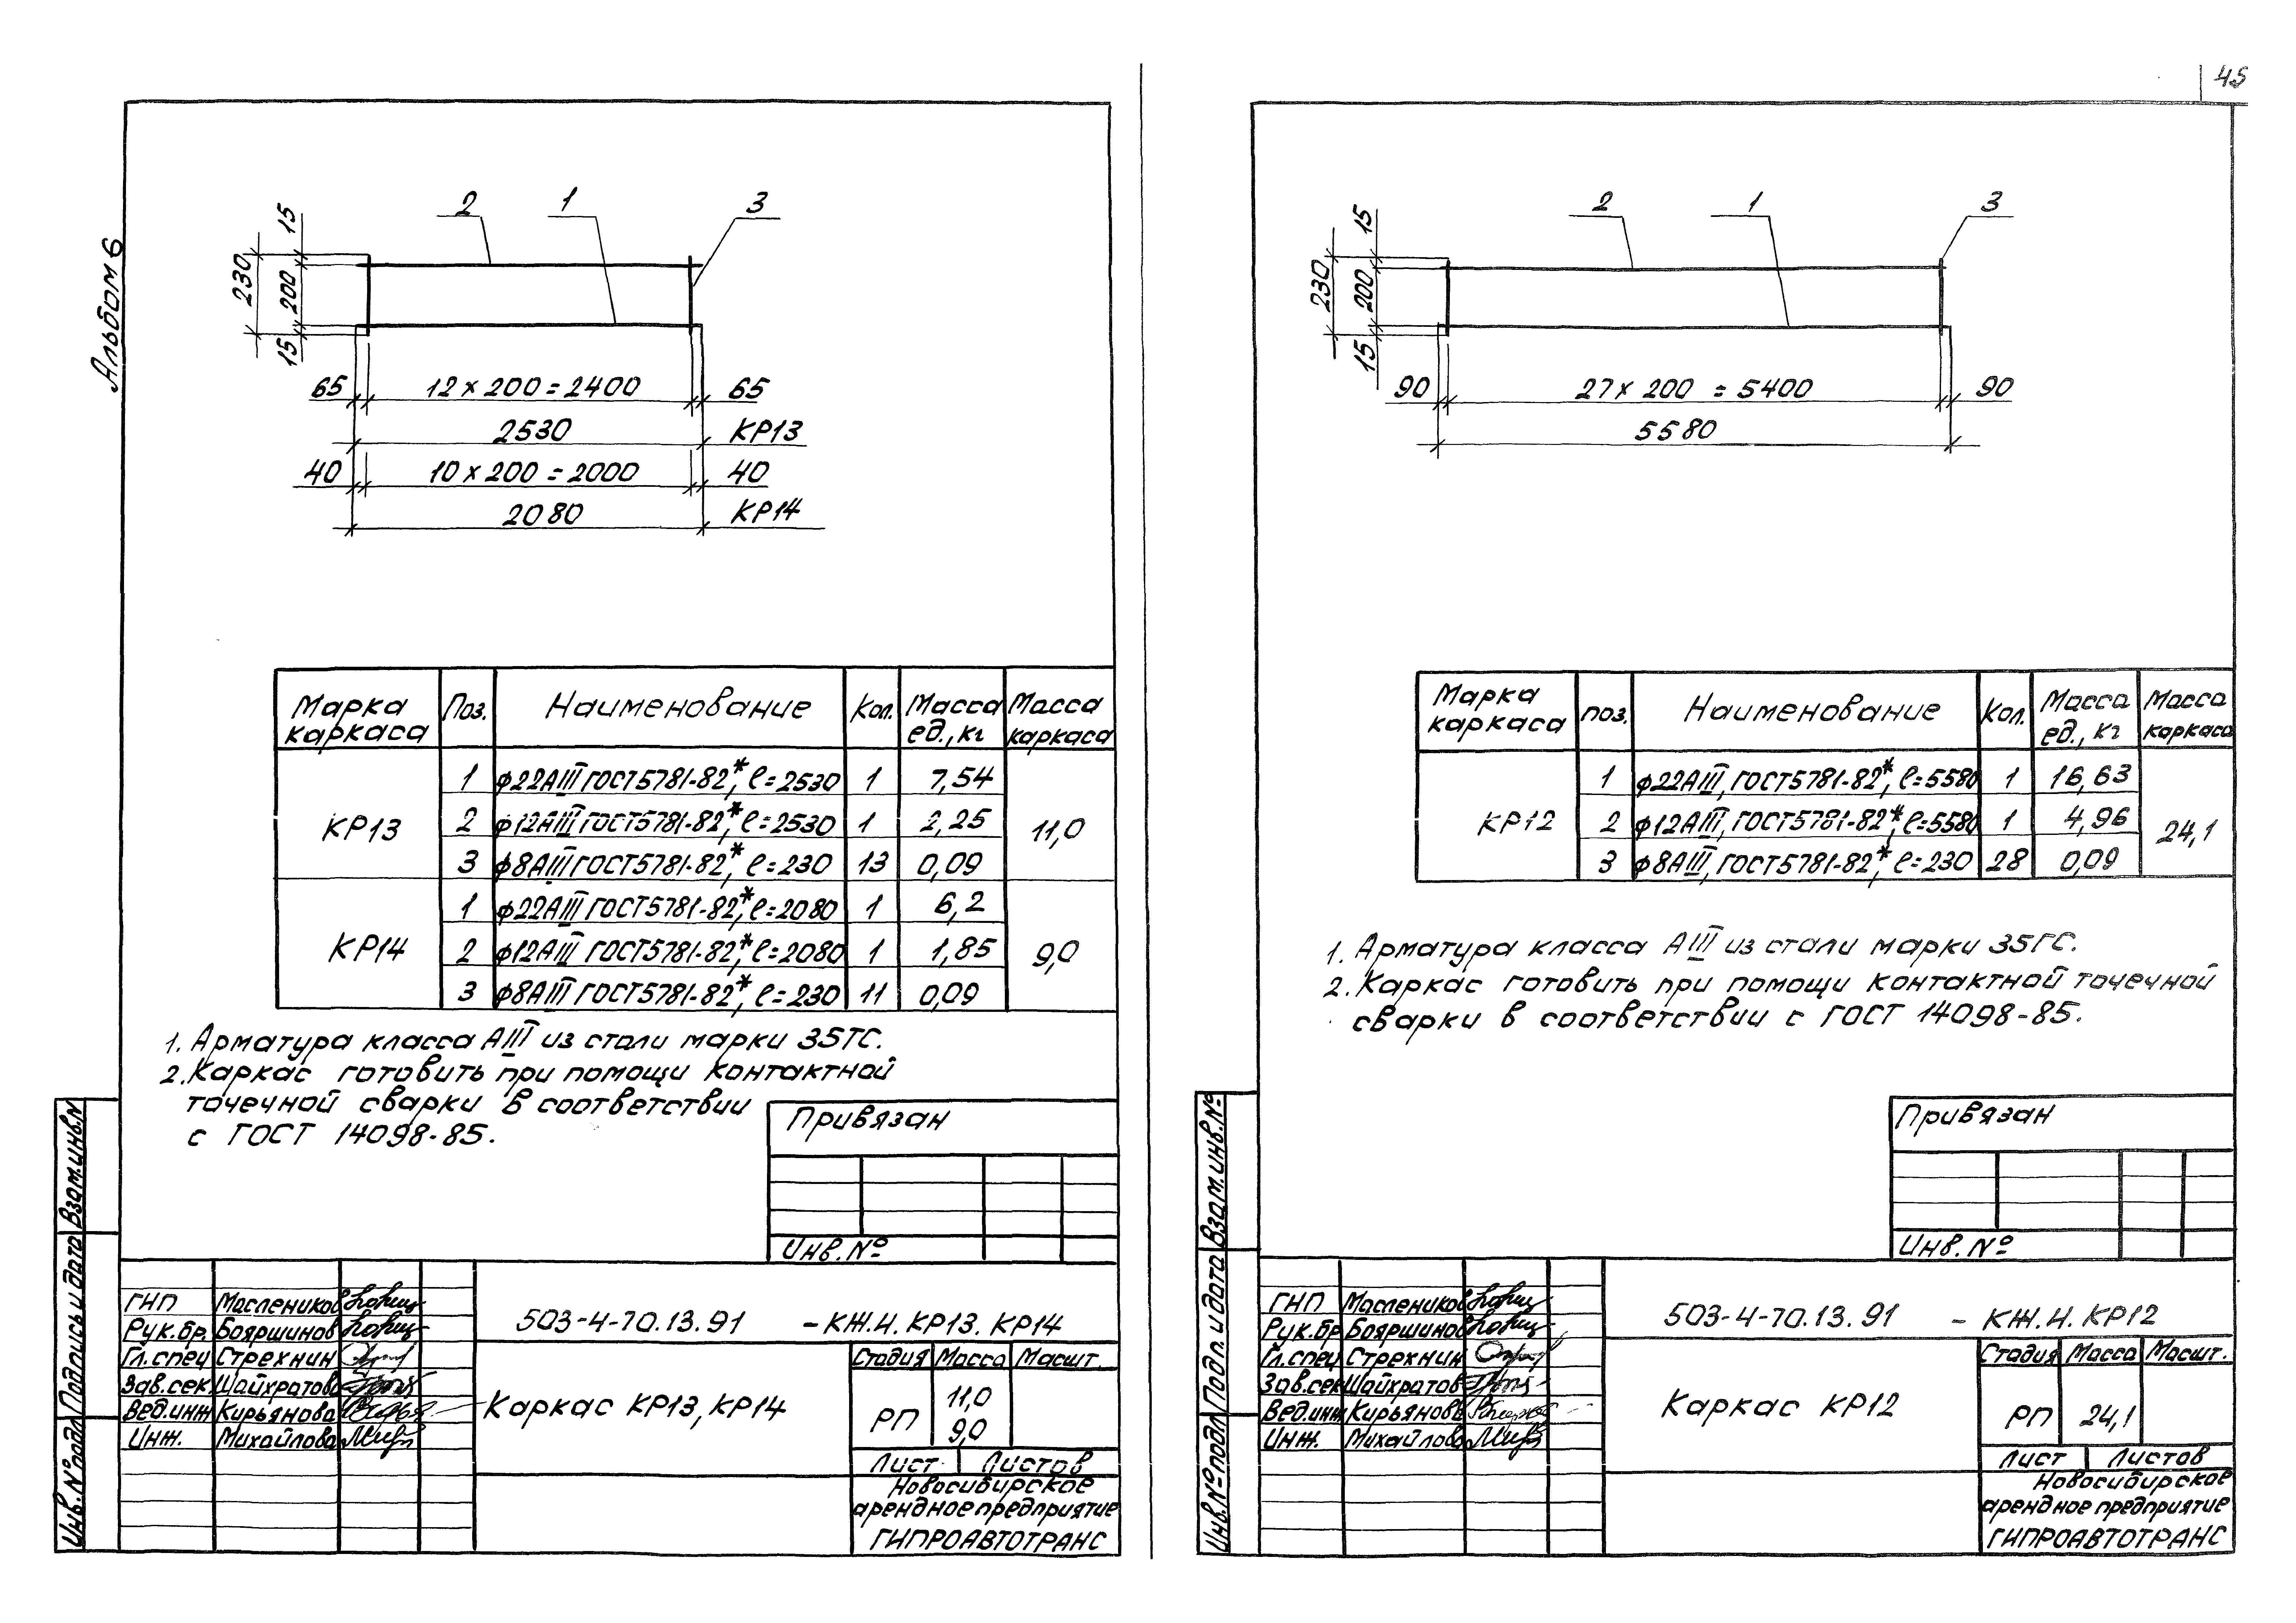 45
Альбом 6
2 1 3
15
230 200
15
65 12 × 200 = 2400 65
2530 КР13
40 10 × 200 = 2000 40
2080 КР14
Марка каркаса Поз. Наименование Кол. Масса ед., кг Масса каркаса
КР13 1 ф22АIII ГОСТ5781-82*, ℓ=2530 1 7,54 11,0
2 ф12АIII ГОСТ5781-82*, ℓ=2530 1 2,25
3 ф8АIII ГОСТ5781-82*, ℓ=230 13 0,09
КР14 1 ф22АIII ГОСТ5781-82*, ℓ=2080 1 6,2 9,0
2 ф12АIII ГОСТ5781-82*, ℓ=2080 1 1,85
3 ф8АIII ГОСТ5781-82*, ℓ=230 11 0,09
1. Арматура класса АIII из стали марки 35ГС.
2. Каркас готовить при помощи контактной
точечной сварки в соответствии
с ГОСТ 14098-85.
Привязан
Инв. №
Инв. № подл Подпись и дата Взам. инв. N
ГНП Маслеников
Рук.бр. Бояршинов
Гл.спец Стрехнин
Зав.сек. Шайхратов
Вед.инж Кирьянова
Инж. Михайлова
503-4-70.13.91 - КЖ.И. КР13. КР14
Каркас КР13, КР14
Стадия Масса Масшт.
РП 11,0
9,0
Лист Листов
Новосибирское
арендное предприятие
ГИПРОАВТОТРАНС
2 1 3
15
230 200
15
90 27 × 200 = 5400 90
5580
Марка каркаса поз. Наименование Кол. Масса ед., кг Масса каркаса
КР12 1 ф22АIII, ГОСТ5781-82*, ℓ=5580 1 16,63 24,1
2 ф12АIII, ГОСТ5781-82*, ℓ=5580 1 4,96
3 ф8АIII, ГОСТ5781-82*, ℓ=230 28 0,09
1. Арматура класса АIII из стали марки 35ГС.
2. Каркас готовить при помощи контактной точечной
сварки в соответствии с ГОСТ 14098-85.
Привязан
Инв. №
Инв. № подл Подп. и дата Взам. инв. №
ГНП Маслеников
Рук.бр Бояршинов
Гл.спец Стрехнин
Зав.сек Шайхратов
Вед.инж Кирьянов
Инж. Михайлова
503-4-70.13.91 - КЖ.И. КР12
Каркас КР12
Стадия Масса Масшт.
РП 24,1
Лист Листов
Новосибирское
арендное предприятие
ГИПРОАВТОТРАНС